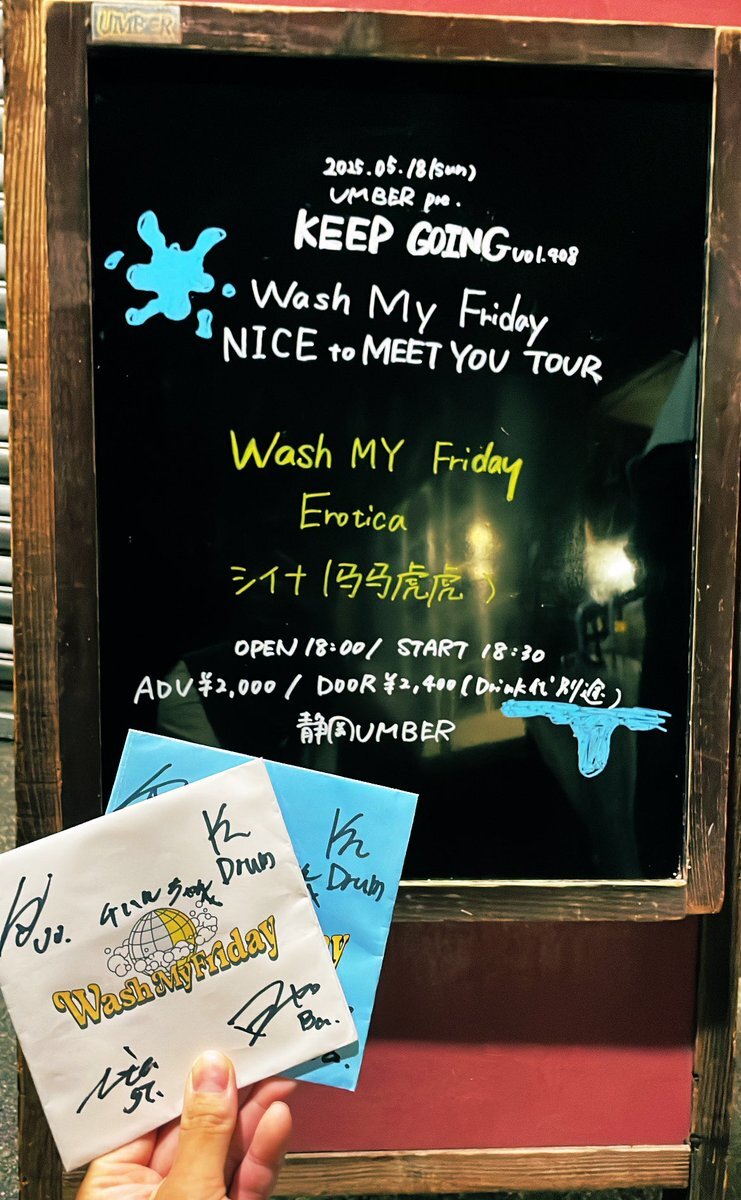 UMBER
2025.05.18(sun)
UMBER pre.
KEEP GOING vol.908
Wash My Friday
NICE to MEET YOU TOUR
Wash MY Friday
Erotica
シイナ(马马虎虎)
OPEN 18:00 / START 18:30
ADV ¥2,000 / DOOR ¥2,400 (Drink代別途)
静岡UMBER
Drum
Drum
Wash My Friday
Ba.